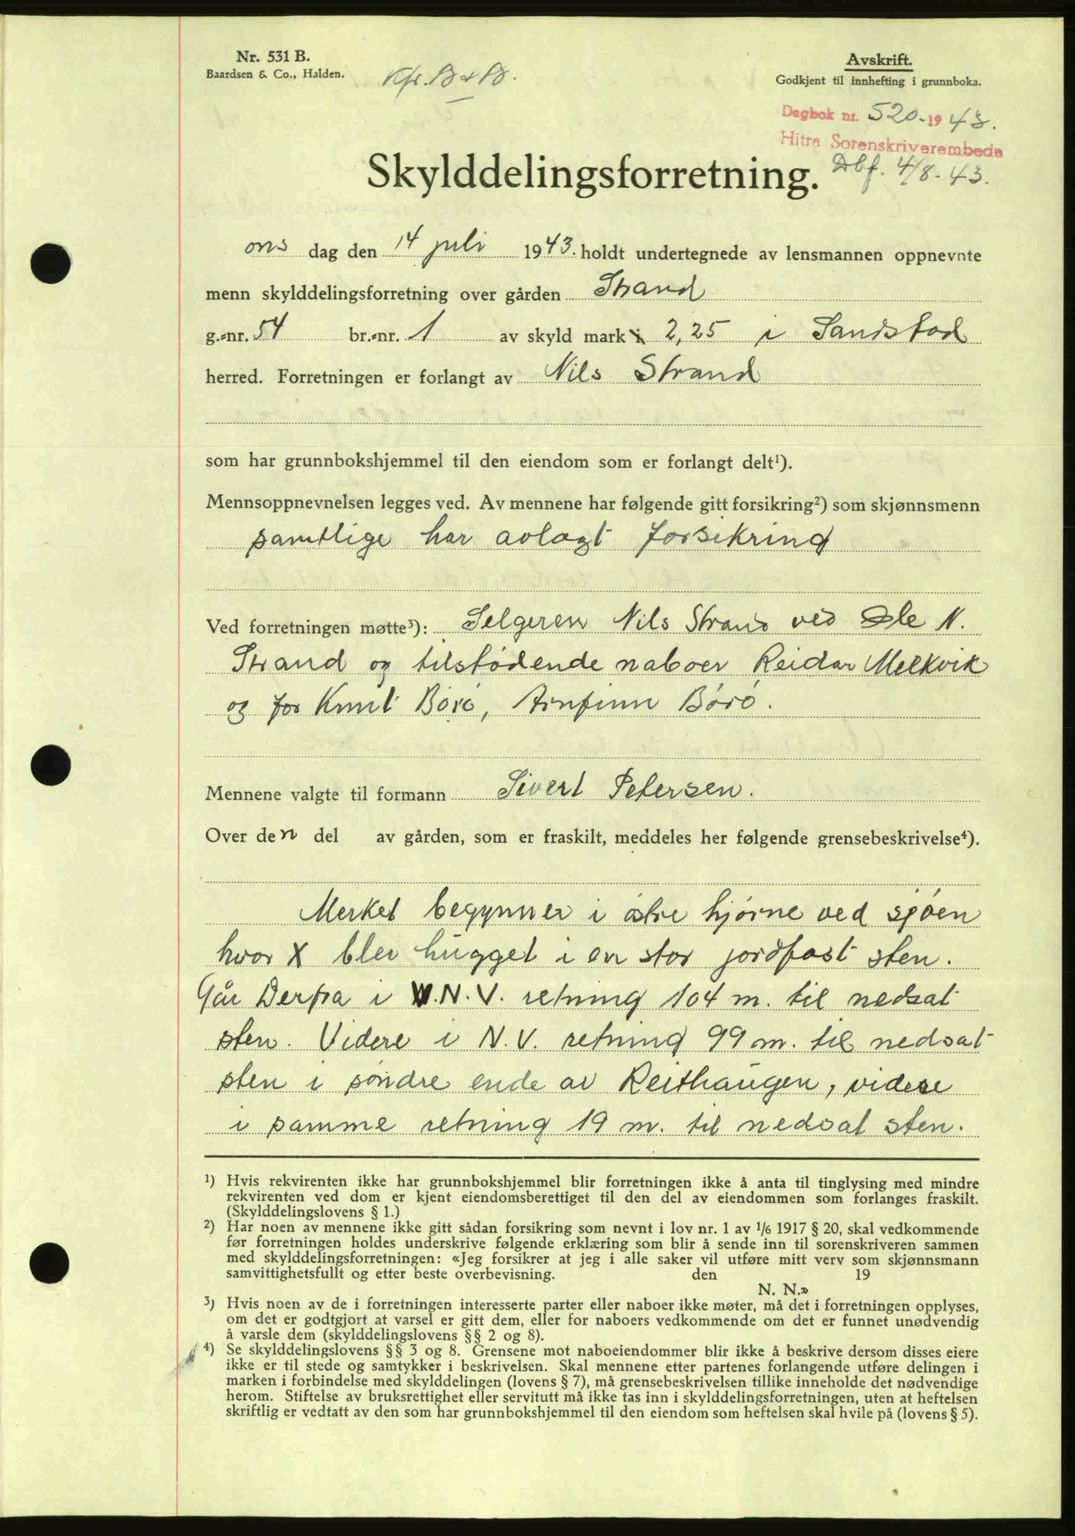 Nr. 531 B.
Baardsen & Co., Halden.
Kfr. B & B.
Avskrift.
Godkjent til innhefting i grunnboka.
Dagbok nr. 520-1943.
Hitra Sorenskriverembede
Dbf. 4/8-43.
Skylddelingsforretning.
ons dag den 14 juli 1943. holdt undertegnede av lensmannen oppnevnte
menn skylddelingsforretning over gården Strand
g.-nr. 54 br.-nr. 1 av skyld mark 2,25 i Sandstad
herred. Forretningen er forlangt av Nils Strand
som har grunnbokshjemmel til den eiendom som er forlangt delt¹).
Mennsoppnevnelsen legges ved. Av mennene har følgende gitt forsikring²) som skjønnsmenn
samtlige har avlagt forsikring
Ved forretningen møtte³): Selgeren Nils Strand ved Ole N.
Strand og tilstødende naboer Reidar Melkvik
og for Knut Börö, Arnfinn Börö.
Mennene valgte til formann Sivert Petersen.
Over den del av gården, som er fraskilt, meddeles her følgende grensebeskrivelse⁴).
Merket begynner i östre hjörne ved sjöen
hvor X blev hugget i en stor jordfast sten.
Går Derfra i V.N.V. retning 104 m. til nedsat
sten. Videre i N.V. retning 99 m. til nedsat
sten i söndre ende av Reithaugen, videre
i samme retning 19 m. til nedsat sten.
¹) Hvis rekvirenten ikke har grunnbokshjemmel blir forretningen ikke å anta til tinglysing med mindre
rekvirenten ved dom er kjent eiendomsberettiget til den del av eiendommen som forlanges fraskilt.
(Skylddelingslovens § 1.)
²) Har noen av mennene ikke gitt sådan forsikring som nevnt i lov nr. 1 av 1/6 1917 § 20, skal vedkommende
før forretningen holdes underskrive følgende erklæring som blir å sende inn til sorenskriveren sammen
med skylddelingsforretningen: «Jeg forsikrer at jeg i alle saker vil utføre mitt verv som skjønnsmann
samvittighetsfullt og etter beste overbevisning. den 19
N. N.»
³) Hvis noen av de i forretningen interesserte parter eller naboer ikke møter, må det i forretningen opplyses,
om det er godtgjort at varsel er gitt dem, eller for naboers vedkommende om det er funnet unødvendig
å varsle dem (skylddelingslovens §§ 2 og 8).
⁴) Se skylddelingslovens §§ 3 og 8. Grensene mot naboeiendommer blir ikke å beskrive dersom disses eiere
ikke er til stede og samtykker i beskrivelsen. Skal mennene etter partenes forlangende utføre delingen i
marken i forbindelse med skylddelingen (lovens § 7), må grensebeskrivelsen tillike inneholde det nødvendige
herom. Stiftelse av bruksrettighet eller servitutt må ikke tas inn i skylddelingsforretningen, uten at heftelsen
skriftlig er vedtatt av den som har grunnbokshjemmel til den eiendom som heftelsen skal hvile på (lovens § 5).